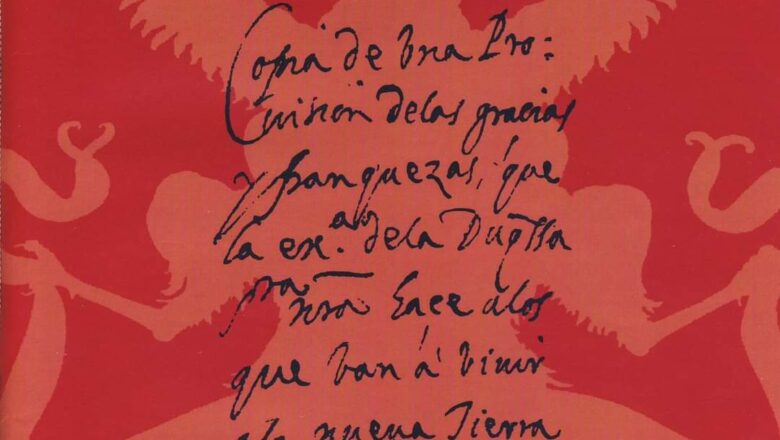 Copia de vna Pro=
uision delas gracias
y franquezas, que
la exª. dela Duqssa
pra nra haçe alos
que van á viuir
nueua Tierra